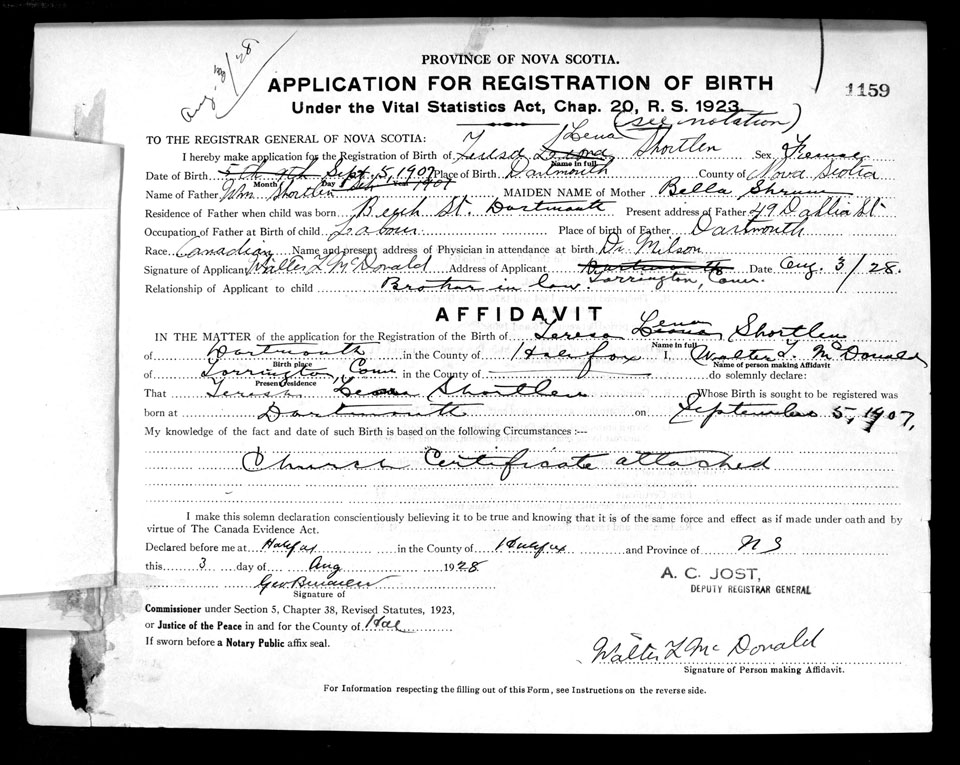 Aug. /28
PROVINCE OF NOVA SCOTIA.
APPLICATION FOR REGISTRATION OF BIRTH
1159
Under the Vital Statistics Act, Chap. 20, R. S. 1923.
(see notation)
TO THE REGISTRAR GENERAL OF NOVA SCOTIA:
Lena
I hereby make application for the Registration of Birth of Teresa Leona Shortlen Sex Female
Name in full
Date of Birth 5th Sept. 5, 1907 Place of Birth Dartmouth County of Nova Scotia
Month Day Year 1907
Name of Father Wm Shortlen MAIDEN NAME of Mother Bella Shrum
Residence of Father when child was born St. Dartmouth Present address of Father 49 Dahlia St
Occupation of Father at Birth of child Labour Place of birth of Father Dartmouth
Race Canadian Name and present address of Physician in attendance at birth Dr. Milson
Signature of Applicant Walter L McDonald Address of Applicant Dartmouth Date Aug. 3/28.
Relationship of Applicant to child Brother in law. Torrington, Conn.
AFFIDAVIT
Lena
IN THE MATTER of the application for the Registration of the Birth of Teresa Leona Shortlen
Name in full
of Dartmouth in the County of Halifax I, Walter L. McDonald
Birth place Name of person making Affidavit
of Torrington, Conn in the County of do solemnly declare:
Present residence
That Teresa Shortlen Whose Birth is sought to be registered was
born at Dartmouth on September 5, 1907,
My knowledge of the fact and date of such Birth is based on the following Circumstances :---
Church Certificate attached
I make this solemn declaration conscientiously believing it to be true and knowing that it is of the same force and effect as if made under oath and by
virtue of The Canada Evidence Act.
Declared before me at Halifax in the County of Halifax and Province of N S
this 3 day of Aug 1928
A. C. JOST,
DEPUTY REGISTRAR GENERAL
Geo.
Signature of
Commissioner under Section 5, Chapter 38, Revised Statutes, 1923,
or Justice of the Peace in and for the County of Hal
If sworn before a Notary Public affix seal.
Walter L McDonald
Signature of Person making Affidavit.
For Information respecting the filling out of this Form, see Instructions on the reverse side.